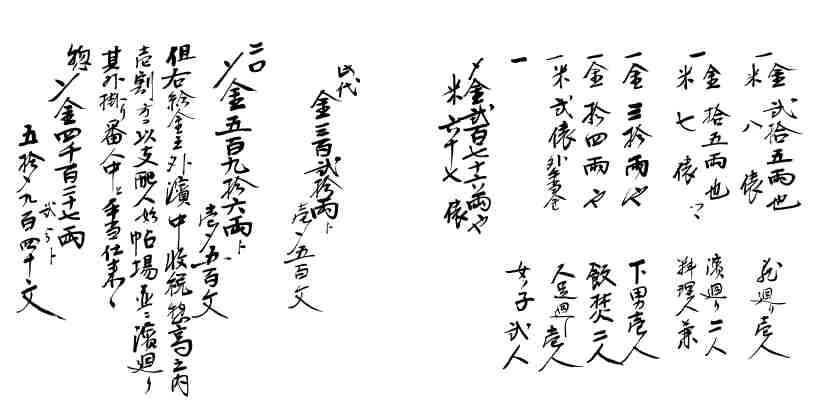 一金弐拾五両也
一米八俵
蔵廻り壱人
一金拾五両也
一米七俵ツヽ
濱廻り二人
料理人兼
一金三拾両也
下男壱人
一金拾四両也
飯焚二人
一米弐俵
人足廻し壱人
一
女ノ子弐人
〆金弐百七十六両也
米六十七俵
此代
金三百弐拾両ト
壱〆五百文
二口
〆金五百九拾六両ト
壱〆五百文
但右給金之外濱中収納惣高之内
壱割方を以支配人始帖場並ニ濱廻り
其外掛り番人中ニ手当仕来ル
惣〆金四千百二十七両
弐分ト
五拾〆九百四十文